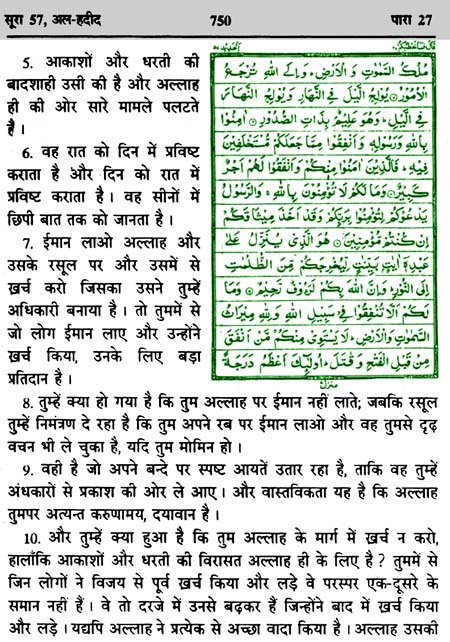 सूरा 57, अल-हदीद 750 पारा 27
5. आकाशों और धरती की
बादशाही उसी की है और अल्लाह
ही की ओर सारे मामले पलटते
हैं ।
6. वह रात को दिन में प्रविष्ट
कराता है और दिन को रात में
प्रविष्ट कराता है । वह सीनों में
छिपी बात तक को जानता है ।
7. ईमान लाओ अल्लाह और
उसके रसूल पर और उसमें से
ख़र्च करो जिसका उसने तुम्हें
अधिकारी बनाया है । तो तुममें से
जो लोग ईमान लाए और उन्होंने
ख़र्च किया, उनके लिए बड़ा
प्रतिदान है ।
مُلْكُ السَّمٰوٰتِ وَالْاَرْضِ، وَاِلَى اللّٰهِ تُرْجَعُ
الْاُمُوْرُ يُوْلِجُ الَّيْلَ فِي النَّهَارِ وَيُوْلِجُ النَّهَارَ
فِي الَّيْلِ، وَهُوَ عَلِيْمٌ بِذَاتِ الصُّدُوْرِ اٰمِنُوْا
بِاللّٰهِ وَرَسُوْلِهٖ وَاَنْفِقُوْا مِمَّا جَعَلَكُمْ مُّسْتَخْلَفِيْنَ
فِيْهِ، فَالَّذِيْنَ اٰمَنُوْا مِنْكُمْ وَاَنْفَقُوْا لَهُمْ اَجْرٌ
كَبِيْرٌ وَمَا لَكُمْ لَا تُؤْمِنُوْنَ بِاللّٰهِ، وَالرَّسُوْلُ
يَدْعُوْكُمْ لِتُؤْمِنُوْا بِرَبِّكُمْ وَقَدْ اَخَذَ مِيْثَاقَكُمْ
اِنْ كُنْتُمْ مُّؤْمِنِيْنَ هُوَ الَّذِيْ يُنَزِّلُ عَلٰى
عَبْدِهٖٓ اٰيٰتٍ بَيِّنٰتٍ لِّيُخْرِجَكُمْ مِّنَ الظُّلُمٰتِ
اِلَى النُّوْرِ، وَاِنَّ اللّٰهَ بِكُمْ لَرَءُوْفٌ رَّحِيْمٌ وَمَا
لَكُمْ اَلَّا تُنْفِقُوْا فِيْ سَبِيْلِ اللّٰهِ وَلِلّٰهِ مِيْرَاثُ
السَّمٰوٰتِ وَالْاَرْضِ، لَا يَسْتَوِيْ مِنْكُمْ مَّنْ اَنْفَقَ
مِنْ قَبْلِ الْفَتْحِ وَقٰتَلَ، اُولٰٓئِكَ اَعْظَمُ دَرَجَةً
8. तुम्हें क्या हो गया है कि तुम अल्लाह पर ईमान नहीं लाते; जबकि रसूल
तुम्हें निमंत्रण दे रहा है कि तुम अपने रब पर ईमान लाओ और वह तुमसे दृढ़
वचन भी ले चुका है, यदि तुम मोमिन हो ।
9. वही है जो अपने बन्दे पर स्पष्ट आयतें उतार रहा है, ताकि वह तुम्हें
अंधकारों से प्रकाश की ओर ले आए । और वास्तविकता यह है कि अल्लाह
तुमपर अत्यन्त करुणामय, दयावान है ।
10. और तुम्हें क्या हुआ है कि तुम अल्लाह के मार्ग में ख़र्च न करो,
हालाँकि आकाशों और धरती की विरासत अल्लाह ही के लिए है ? तुममें से
जिन लोगों ने विजय से पूर्व ख़र्च किया और लड़े वे परस्पर एक-दूसरे के
समान नहीं हैं । वे तो दरजे में उनसे बढ़कर हैं जिन्होंने बाद में ख़र्च किया
और लड़े । यद्यपि अल्लाह ने प्रत्येक से अच्छा वादा किया है । अल्लाह उसकी